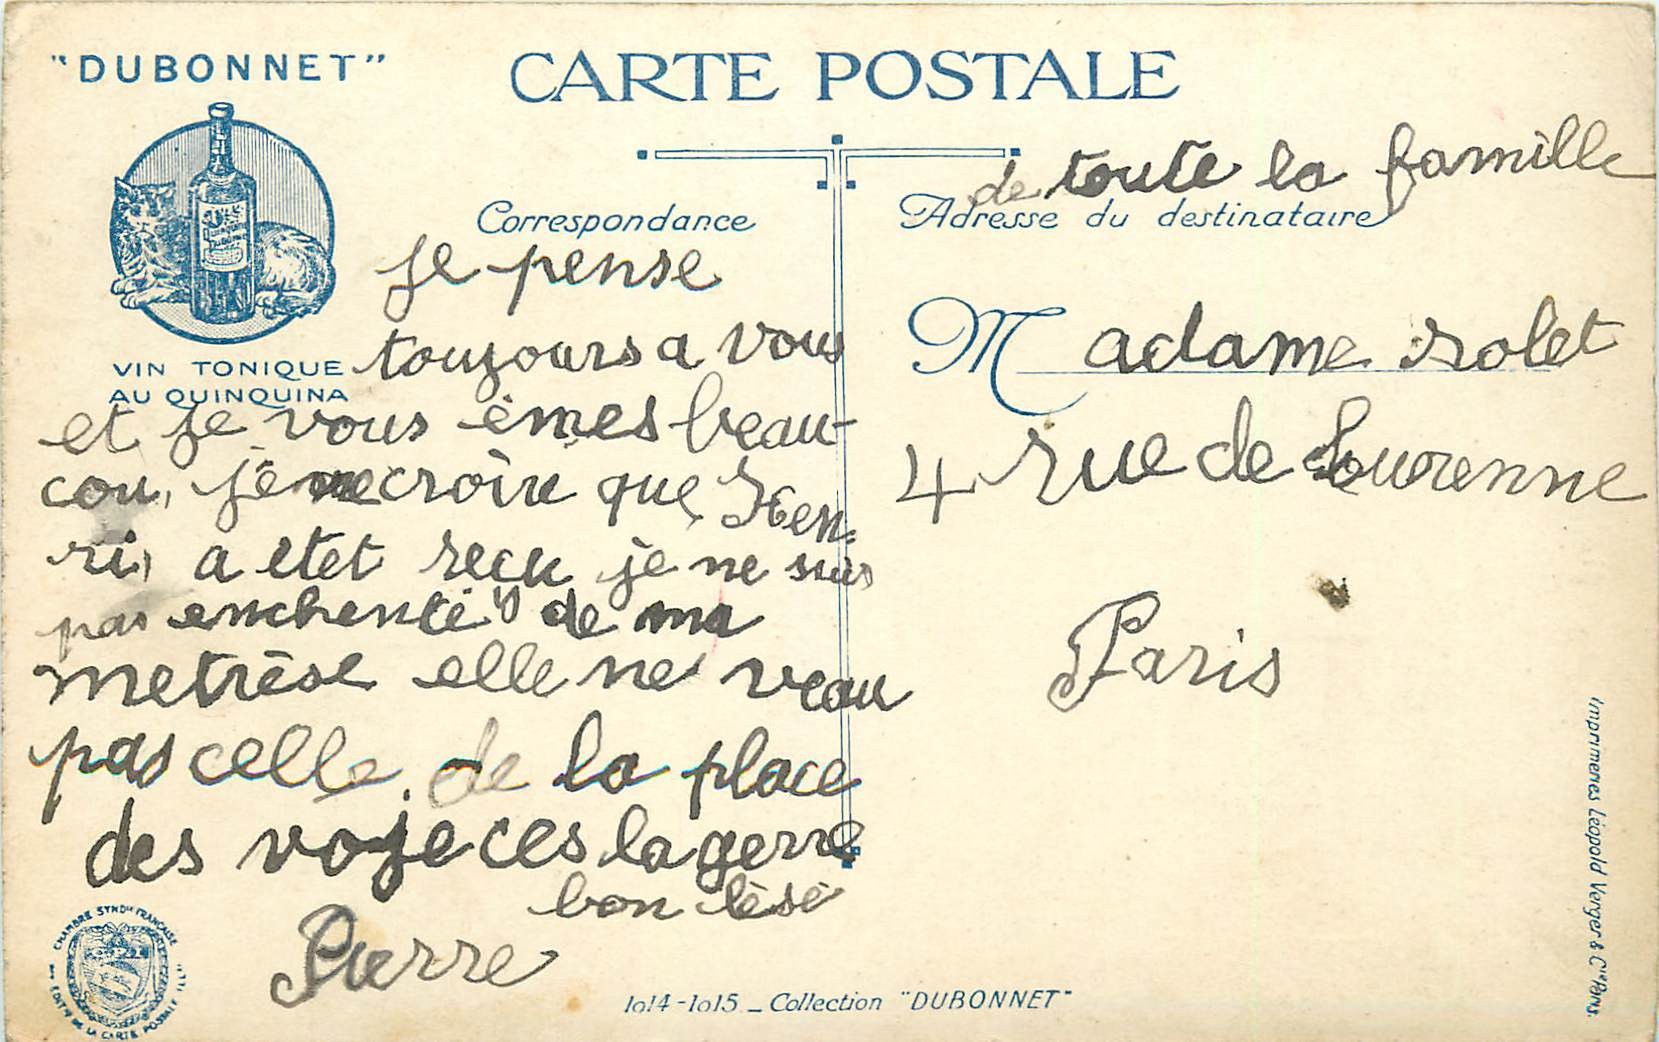 "DUBONNET"
CARTE POSTALE
VIN TONIQUE
AU QUINQUINA
Correspondance
je pense
toujours a vous
et je vous èmes beau-
cou, je ne croire que Hen-
ri, a etet recu je ne suis
pas enchenté de ma
metrèse elle ne veau
pas celle de la place
des voje ces la gerre
bon bèsé
Pierre
de toute la famille
Adresse du destinataire
Madame rolet
4 rue de
Paris
Imprimeries Léopold Verger & Cie Paris.
1014-1015 _ Collection "DUBONNET"
CHAMBRE SYNDle FRANÇAISE
DE LA CARTE POSTALE ILLée